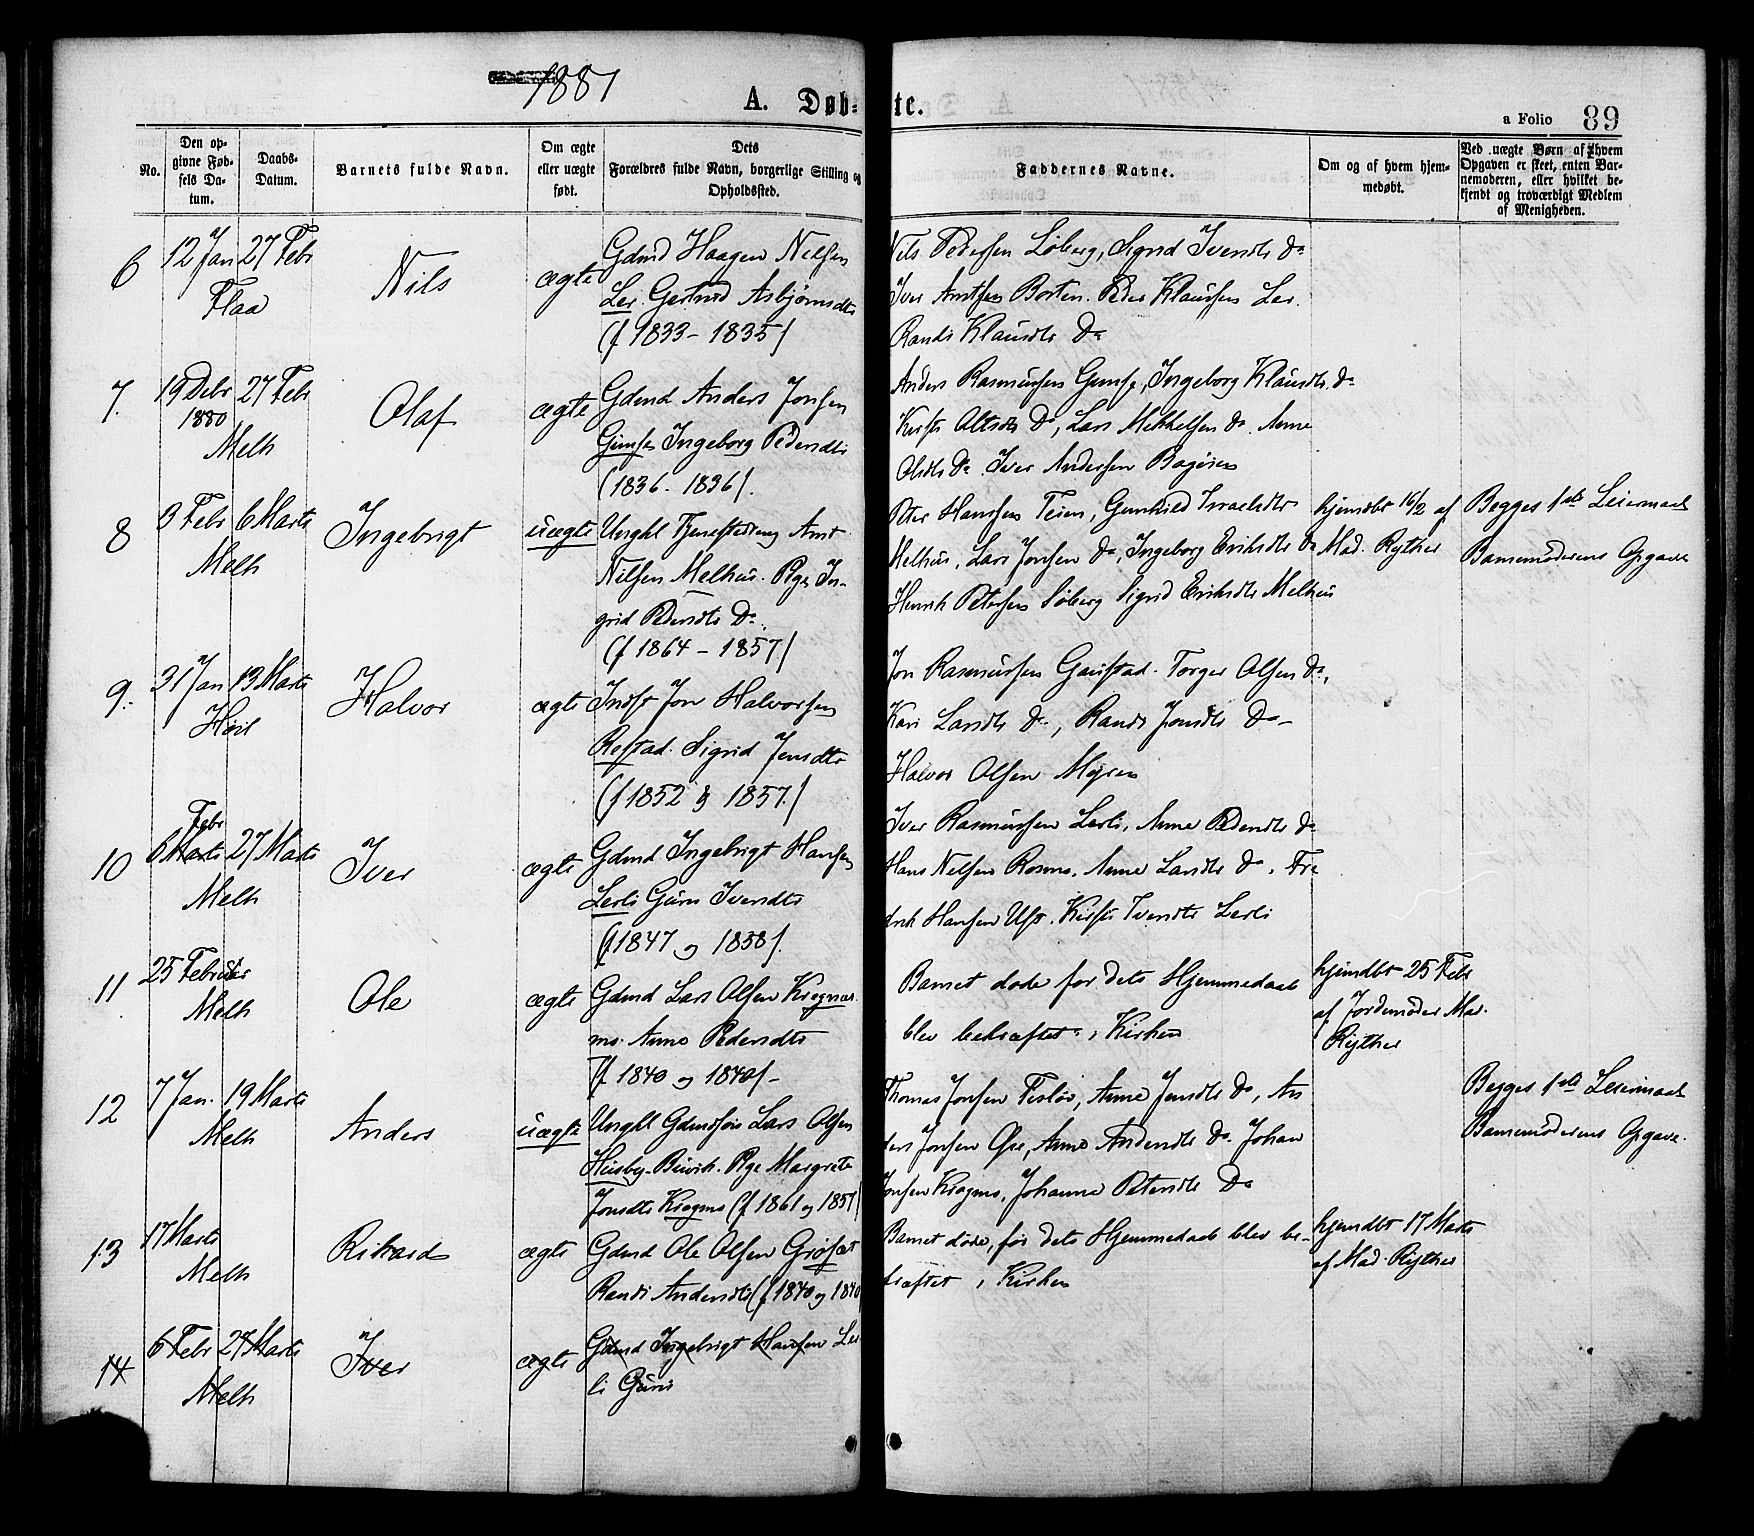 1881
A. Døb=
te.
a Folio 89
No.
Den op-
givne Fød-
sels Da-
tum.
Daabs-
Datum.
Barnets fulde Navn.
Om ægte
eller uægte
født.
Dets
Forældres fulde Navn, borgerlige Stilling og
Opholdssted.
Faddernes Navne.
Om og af hvem hjem-
medøbt.
Ved uægte Børn af hvem
Opgaven er skeet, enten Bar-
nemoderen, eller hvilket be-
kjendt og troværdigt Medlem
af Menigheden.
6 12 Jan 27 Febr Nils ægte Gdmd Haagen Nilsen
Flaa
Ler. Gertrud Asbjørnsdtr
(f 1833 - 1835)
Nils Pedersen Løberg, Sigrid Iversdtr Do
Iver Arntsen Borten. Peder Klausen Ler.
Randi Klausdtr Do
7. 19 Debr 27 Febr Olaf ægte Gdmd Anders Jonsen
1880
Melh
Gimse Ingeborg Pedersdtr
(1836 - 1836).
Anders Rasmussen Gimse, Ingeborg Klausdtr. Do
Do, Lars Mikkelsen Do. Anne
Olsdtr Do. Iver Andersen Bagøien
8 3 Febr 6 Marts Ingebrigt uægte Ungkl Arnt
Melh
Nilsen Melhus. Pige In-
grid Pedersdtr Do.
(f 1864 - 1857)
Peter Hansen Teien, Gunhild Israelsdtr
Melhus, Lars Jonsen Do, Ingeborg Eriksdtr Do
Henrik Petersen Søberg Sigrid Eriksdtr Melhus
hjemdbt 16/2 af
Mad. Rÿther
Begges 1ste Leiermaal
Barnemoderens Opgave
9. 31 Jan 13 Marts Halvor ægte Indst Jon Halvorsen
Høil
Restad. Sigrid Jensdtr
(f 1852 og 1857.)
Jon Rasmussen Gaustad. Torger Olsen Do,
Kari Larsdtr Do, Randi Jonsdtr Do
Halvor Olsen Myren
10 6 Febr Marts 27 Marts Iver ægte Gdmd Ingebrigt Hansen
Melh
Lerli Guru Iversdtr
(f 1847 og 1858).
Iver Rasmussen Lerli, Anne Pedersdtr Do
Hans Nilsen Rosmo, Anne Larsdtr Do, Fre-
drik Hansen Ust. Kirsti Iversdtr Lerli
11 25 Februar Ole ægte Gdmd Lars Olsen Krogmæs
Melh
mo. Anne Pedersdtr
(f 1840 og 1840)
Barnet døde før dets Hjemmedaab
blev bekræftet i Kirken
hjemdbt 25 Febr
af Jordemoder Mad.
Rÿther
12 7 Jan. 19 Marts Anders uægte Ungkl Gdmdsøn Lars Olsen
Melh
Husby-Buvik. Pige Margrete
Jonsdtr Krogmo (f 1861 og 1857)
Thomas Jonsen Tesløv, Anne Jensdtr Do, An
ders Jonsen Øie, Anne Andersdtr Do. Johan
Jonsen Krogmo, Johanna Petersdtr Do
Begges 1ste Leiermaal
Barnemoderens Opgave.
13 17 Marts Rikard ægte Gdmd Ole Olsen Grøfset
Melh
Randi Andersdtr (f 1840 og 1840
Barnet døde, før dets Hjemmedaab blev be-
kræftet i Kirken
hjemdbt 17 Marts
af Mad. Rÿther
14 6 Febr 27 Marts Iver ægte Gdmd Ingebrigt Hansen Ler-
Melh
li Guru